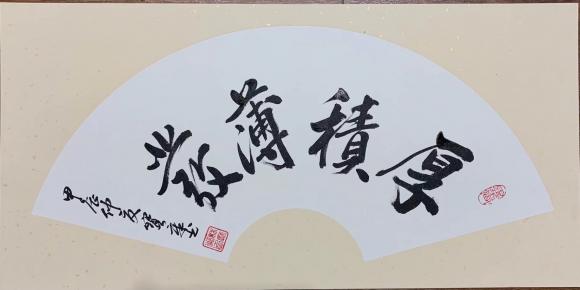 厚積薄發
甲辰仲夏